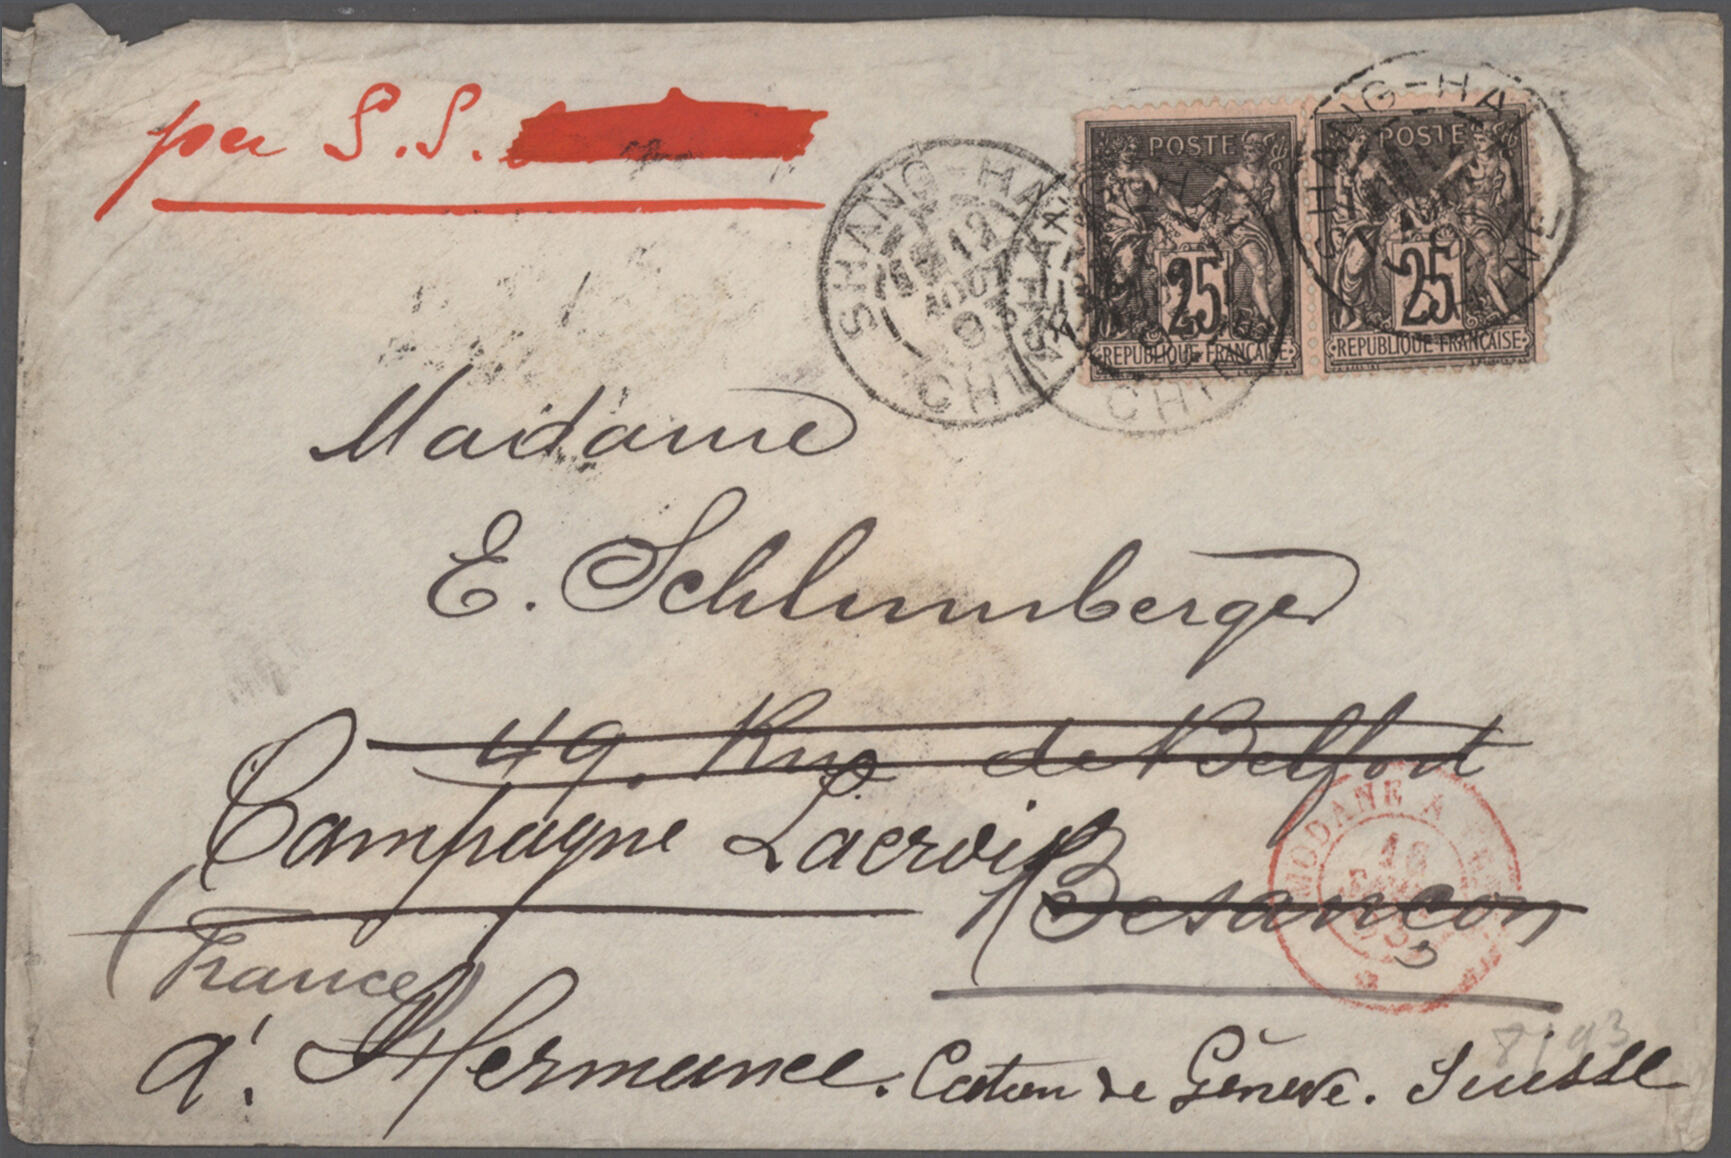 per S.S.
SHANG-HAI
12
AOUT
93
CHINE
SHANG-HAI
CHINE
SHANG-HAI
CHINE
POSTE
25
REPUBLIQUE FRANÇAISE
POSTE
25
REPUBLIQUE FRANÇAISE
Madame
E. Schlumberger
49. Rue de Belfort
Campagne Lacroix
Besançon
(France)
MODANE A
16
93
à Hermance. Canton de Genève. Suisse
8/93